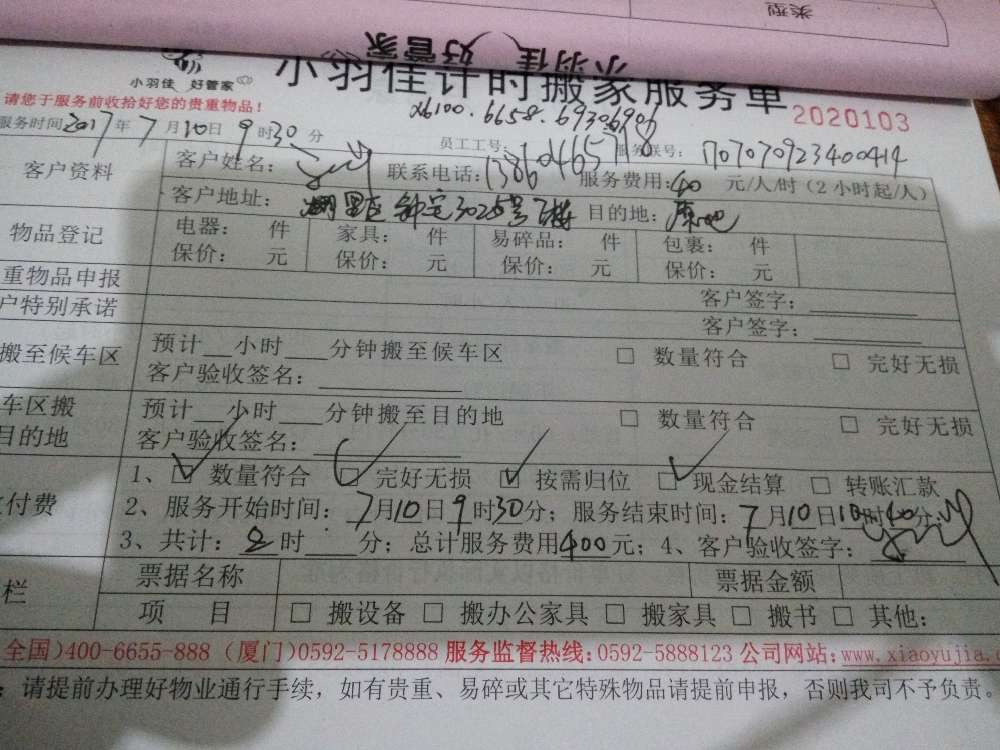 类型
小羽佳 好管家
小羽佳 好管家
小羽佳计时搬家服务单
2020103
请您于服务前收拾好您的贵重物品！
服务时间2017年7月10日9时30分
员工工号：
服务联号：170707092340041​4
客户资料
客户姓名：
联系电话：
服务费用：40 元/人/时（2小时起/人）
客户地址：
目的地：
物品登记
电器： 件 家具： 件 易碎品： 件 包裹： 件
保价： 元 保价： 元 保价： 元 保价： 元
重物品申报
客户签字：
户特别承诺
客户签字：
搬至候车区
预计__小时__分钟搬至候车区 □ 数量符合 □ 完好无损
客户验收签名：
车区搬
目的地
预计__小时__分钟搬至目的地 □ 数量符合 □ 完好无损
客户验收签名：
付费
1、☑ 数量符合 ☑ 完好无损 ☑ 按需归位 ☑ 现金结算 □ 转账汇款
2、服务开始时间：7月10日9时30分；服务结束时间：7月10日10时40分；
3、共计：2时__分；总计服务费用400元；4、客户验收签字：
栏
票据名称 票据金额
项 目 □ 搬设备 □ 搬办公家具 □ 搬家具 □ 搬书 □ 其他：
全国)400-6655-888 (厦门)0592-5178888 服务监督热线:0592-5888123 公司网站:www.xiaoyujia.c
：请提前办理好物业通行手续，如有贵重、易碎或其它特殊物品请提前申报，否则我司不予负责。